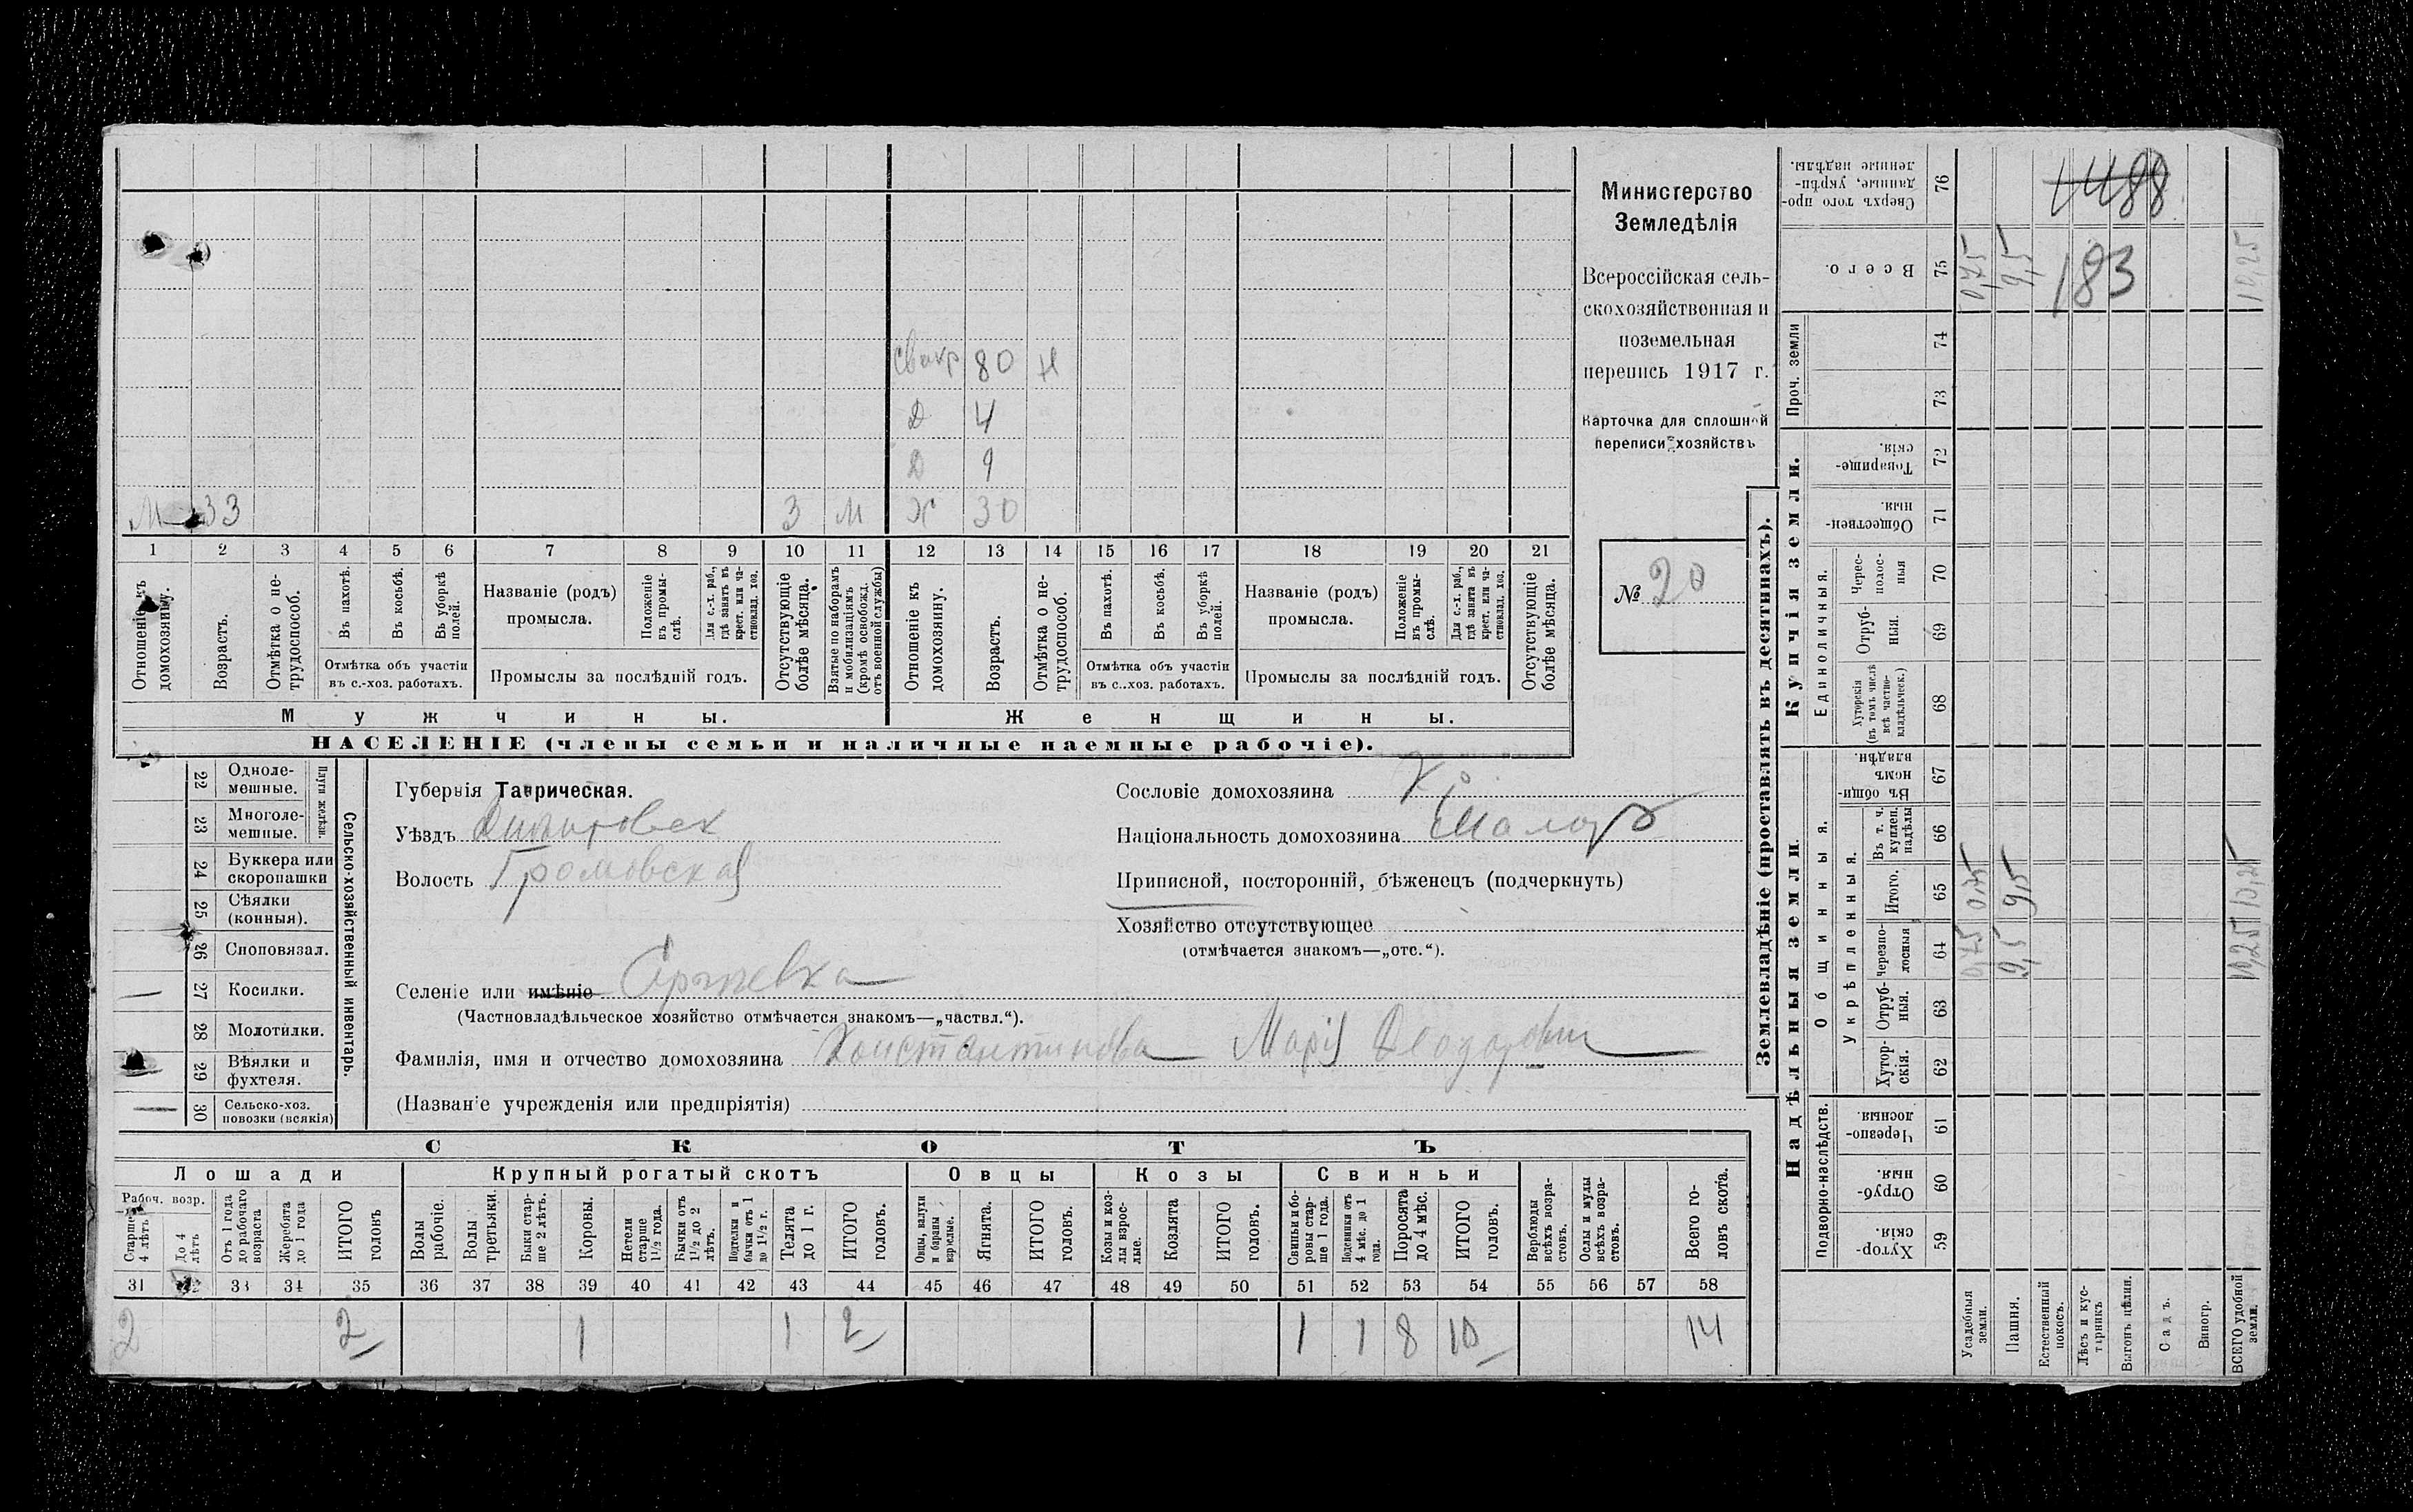 свекр 80 н
Д 4
Д 9
М 33 3 м Ж 30
1 2 3 4 5 6 7 8 9 10 11 12 13 14 15 16 17 18 19 20 21
Отношеніе къ домохозяину.
Возрастъ.
Отмѣтка о не-трудоспособ.
Въ пахотѣ.
Въ косьбѣ.
Въ уборкѣ полей.
Отмѣтка объ участіи
въ с.-хоз. работахъ.
Названіе (родъ)
промысла.
Положеніе въ промы-слѣ.
Для с.-х. раб., гдѣ занятъ въ крест. или ча-стновлад. хоз.
Промыслы за послѣдній годъ.
Отсутствующіе болѣе мѣсяца.
Взятые по наборамъ и мобилизаціямъ (кромѣ освобожд. отъ военной службы)
Отношеніе къ домохозяину.
Возрастъ.
Отмѣтка о не-трудоспособ.
Въ пахотѣ.
Въ косьбѣ.
Въ уборкѣ полей.
Отмѣтка объ участіи
въ с.-хоз. работахъ.
Названіе (родъ)
промысла.
Положеніе въ промы-слѣ.
Для с.-х. раб., гдѣ занята въ крест. или ча-стновлад. хоз.
Промыслы за послѣдній годъ.
Отсутствующіе болѣе мѣсяца.
Мужчины. Женщины.
НАСЕЛЕНІЕ (члены семьи и наличные наемные рабочіе).
Министерство
Земледѣлія
Всероссійская сель-
скохозяйственная и
поземельная
перепись 1917 г.
Карточка для сплошной
переписи хозяйствъ
№ 20
Сельско-хозяйственный инвентарь.
Плуги желѣзн.
22 Одноле-мешные.
23 Многоле-мешные.
24 Буккера или скоропашки
25 Сѣялки (конныя).
26 Сноповязал.
27 Косилки.
28 Молотилки.
29 Вѣялки и фухтеля.
30 Сельско-хоз. повозки (всякія)
Губернія Таврическая.
Уѣздъ
Волость Громовская
Сословіе домохозяина
Національность домохозяина Малор
Приписной, посторонній, бѣженецъ (подчеркнуть)
Хозяйство отсутствующее
(отмѣчается знакомъ—„отс.“).
Селеніе или имѣніе
(Частновладѣльческое хозяйство отмѣчается знакомъ—„частвл.“).
Фамилія, имя и отчество домохозяина Константинова Марія
(Названіе учрежденія или предпріятія)
СКОТЪ
Лошади Крупный рогатый скотъ Овцы Козы Свиньи
Рабоч. возр.
Старше 4 лѣтъ
До 4 лѣтъ
Отъ 1 года до рабочаго возраста
Жеребята до 1 года
ИТОГО головъ
Волы рабочіе.
Волы третьяки.
Быки стар-ше 2 лѣтъ.
Коровы.
Нетели старше 1½ года.
Бычки отъ 1½ до 2 лѣтъ.
Подтелки и бычки отъ 1 до 1½ г.
Телята до 1 г.
ИТОГО головъ.
Овцы, валухи и бараны взрослые.
Ягнята.
ИТОГО головъ.
Козы и коз-лы взрос-лые.
Козлята
ИТОГО головъ.
Свиньи и бо-ровы стар-ше 1 года.
Подсвинки отъ 4 мѣс. до 1 года.
Поросята до 4 мѣс.
ИТОГО головъ.
Верблюды всѣхъ возра-стовъ.
Ослы и мулы всѣхъ возра-стовъ.
Всего го-ловъ скота.
31 32 33 34 35 36 37 38 39 40 41 42 43 44 45 46 47 48 49 50 51 52 53 54 55 56 57 58
2 2 1 1 2 1 1 8 10 14
Землевладѣніе (проставлять въ десятинахъ).
Надѣльныя земли. Купчія земли. Проч. земли
Подворно-наслѣдств.
Общинныя.
Укрѣпленныя.
Единоличныя.
Сверхъ того про-данные, укрѣп-ленные надѣлы. 76
1488
Всего. 75 0,75 9,5 10,25
183
74
73
Товарище-скія. 72
Обществен-ныя. 71
Черес-полос-ныя 70
Отруб-ныя. 69
Хуторскія (въ томъ числѣ всѣ частно-владѣльческ.) 68
Въ общи-номъ владѣн. 67
Въ т. ч. куплен. надѣлы 66
Итого. 65 0,75 9,5 10,25
Черезпо-лосныя 64 0,75 9,5 10,25
Отруб-ныя. 63
Хутор-скія. 62
Черезпо-лосныя. 61
Отруб-ныя. 60
Хутор-скія. 59
Усадебныя земли.
Пашня.
Естественный покосъ.
Лѣсъ и кус-тарникъ
Выгонъ цѣлин.
Садъ.
Виногр.
ВСЕГО удобной земли.